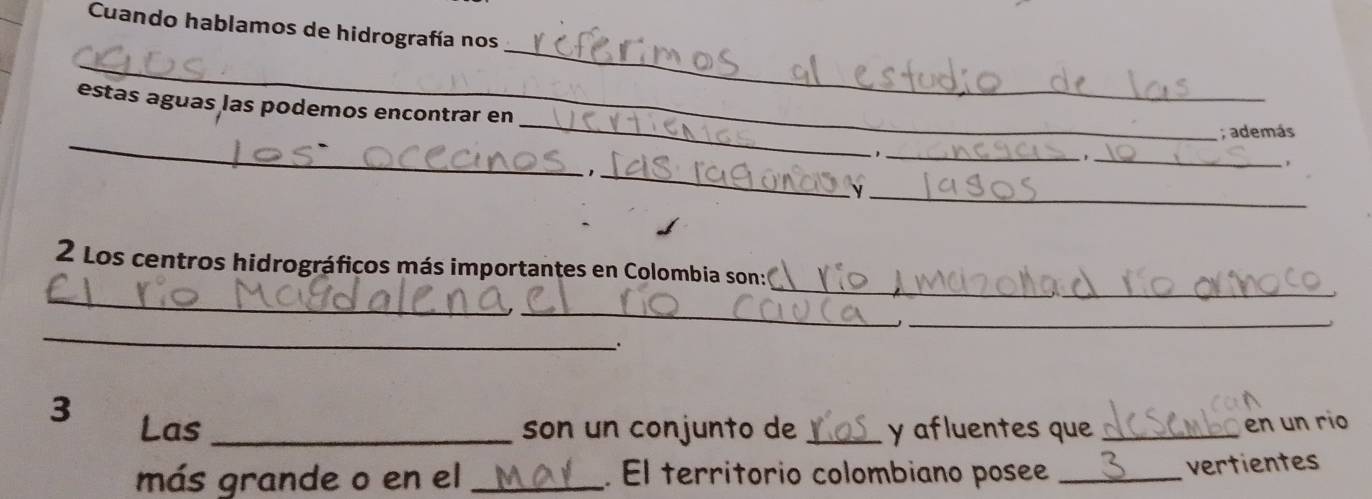 Cuando hablamos de hidrografía nos referimos al estudio de las
agus.
estas aguas las podemos encontrar en vertientes ; además
los oceanos, las lagunas y lagos
2 Los centros hidrográficos más importantes en Colombia son: el río Amazona el río orinoco
El río Magdalena, el río cauca,
.
3 Las son un conjunto de ríos y afluentes que desembocan en un rio
más grande o en el Mar. El territorio colombiano posee 3 vertientes